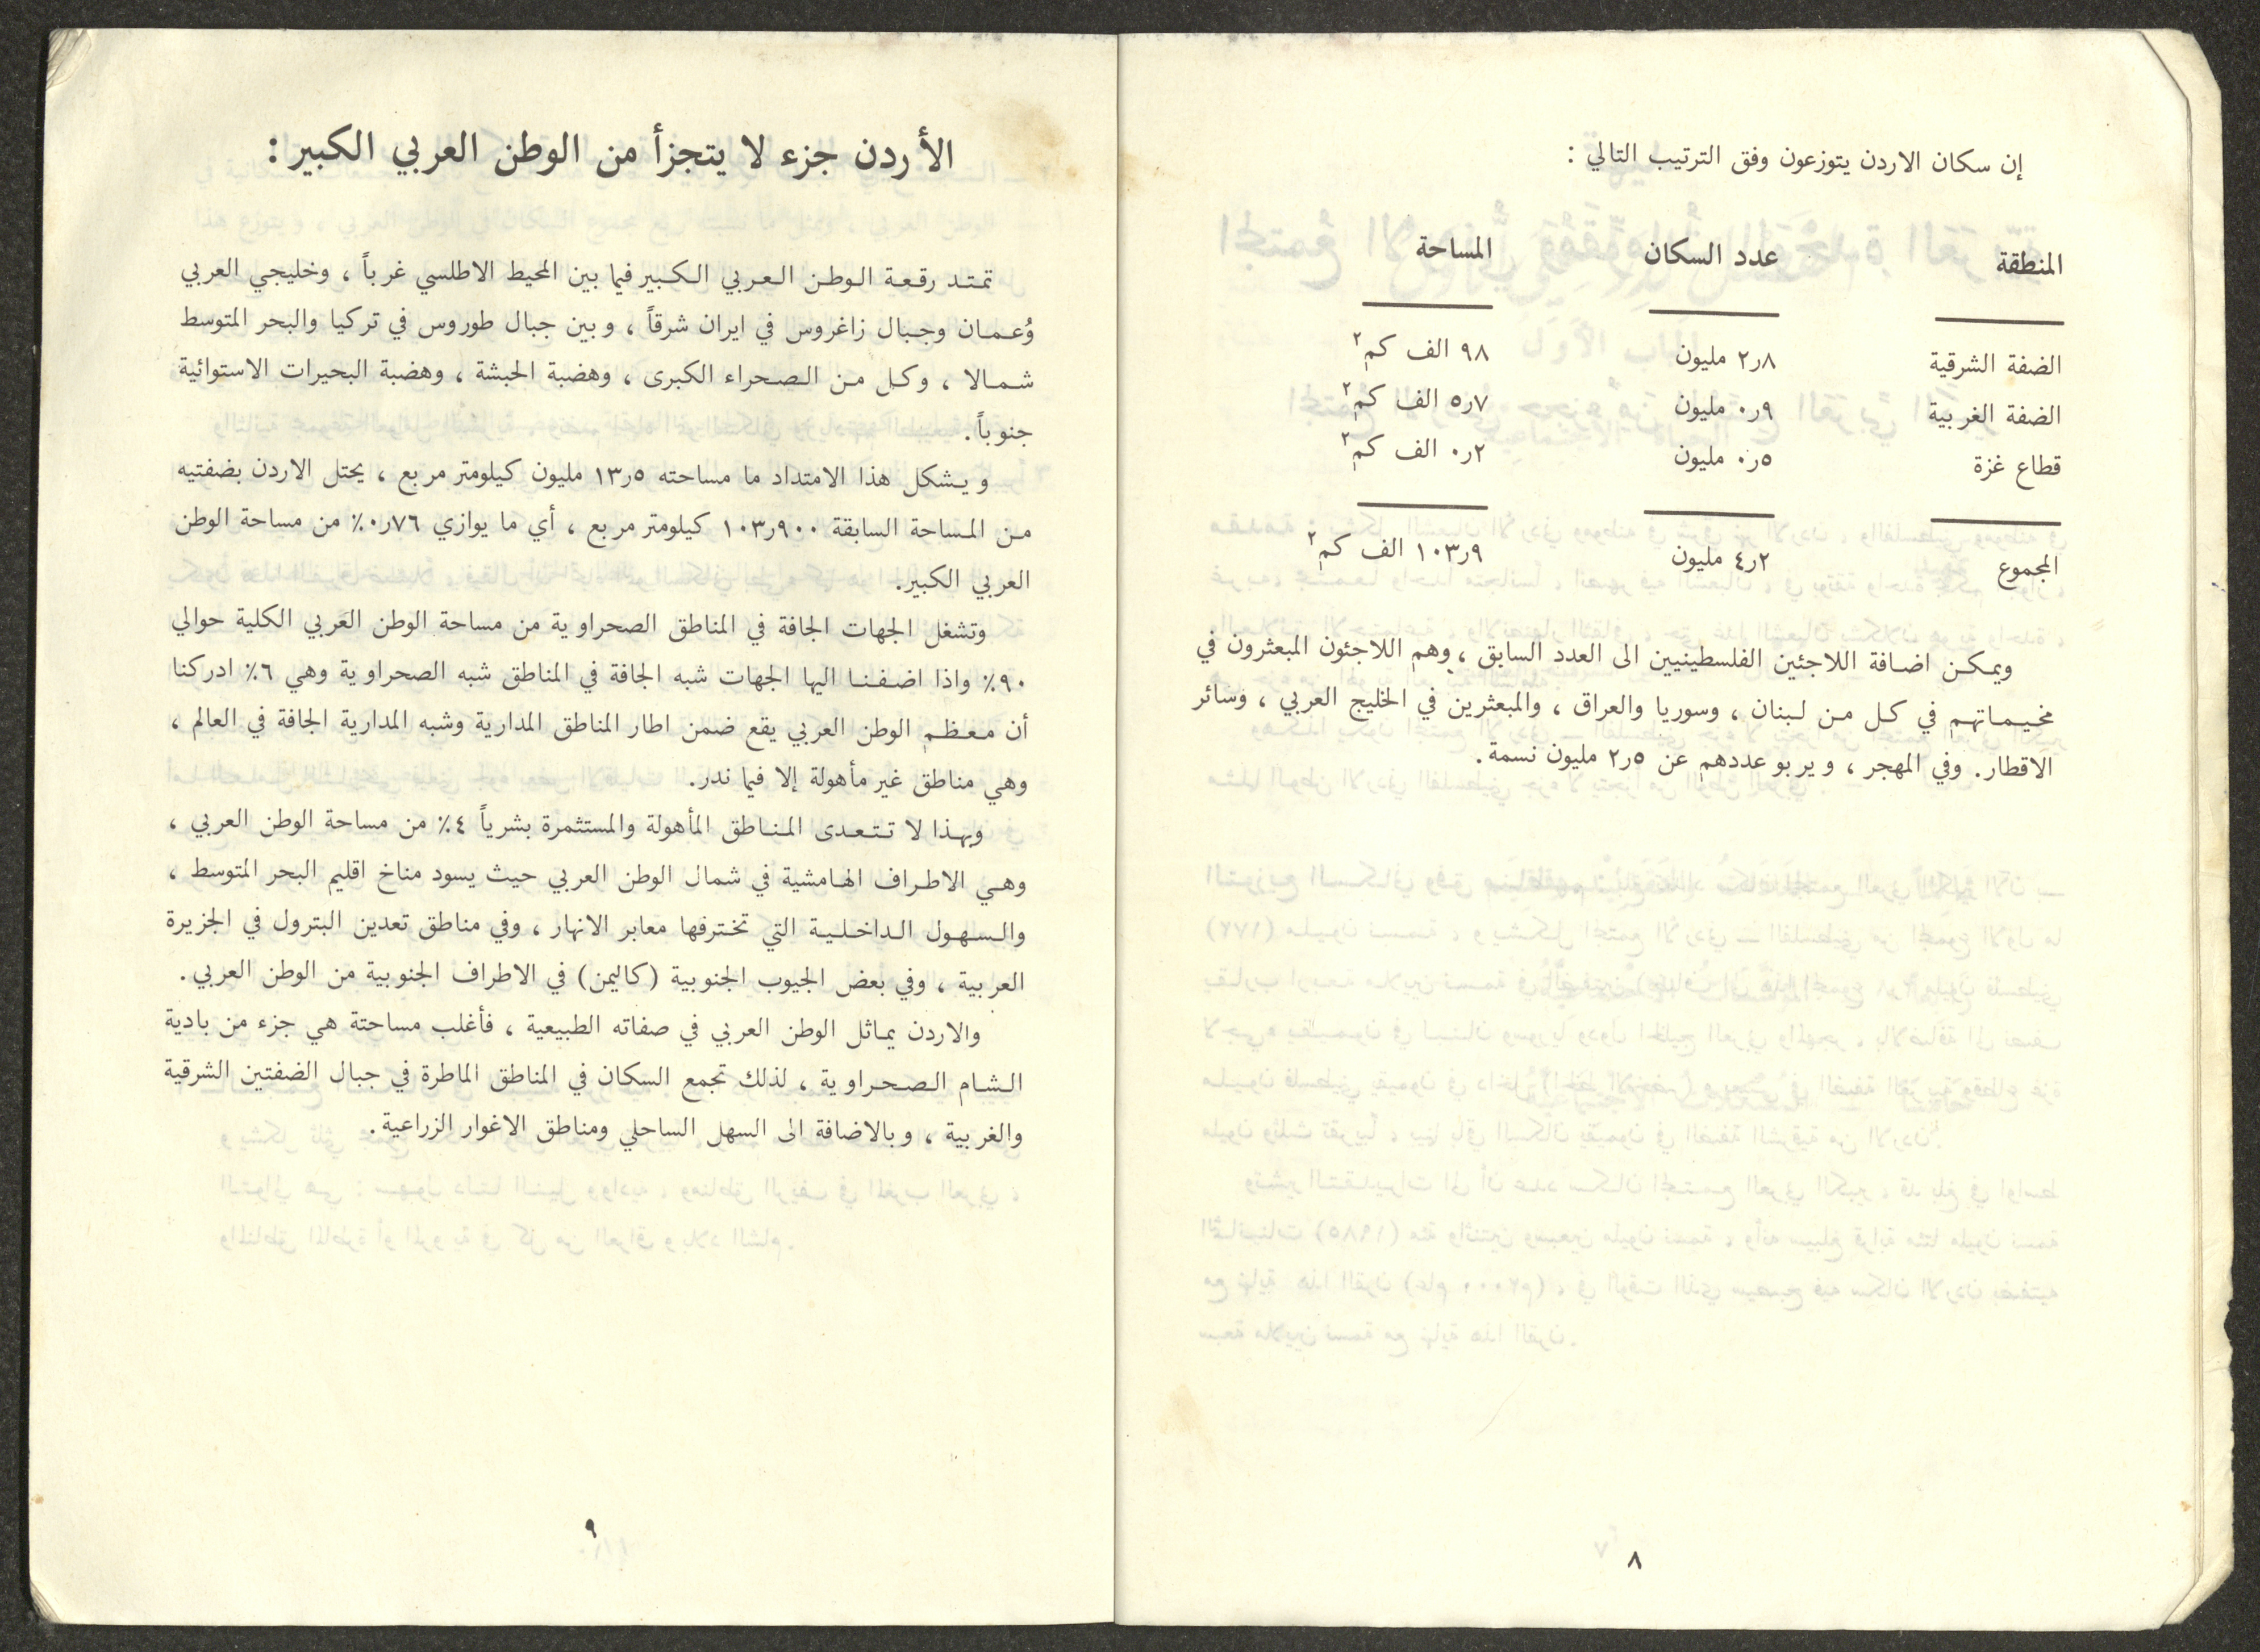 إن سكان الاردن يتوزعون وفق الترتيب التالي :
المنطقة عدد السكان المساحة
الضفة الشرقية ٢٫٨ مليون ٩٨ الف كم٢
الضفة الغربية ٠٫٩ مليون ٥٫٧ الف كم٢
قطاع غزة ٠٫٥ مليون ٠٫٢ الف كم٢
المجموع ٤٫٢ مليون ١٠٣٫٩ الف كم٢
ويمكن اضافة اللاجئين الفلسطينيين الى العدد السابق ، وهم اللاجئون المبعثرون في
مخيماتهم في كل من لبنان ، وسوريا والعراق ، والمبعثرين في الخليج العربي ، وسائر
الاقطار. وفي المهجر ، ويربو عددهم عن ٢٫٥ مليون نسمة.
٨
الأردن جزء لا يتجزأ من الوطن العربي الكبير :
تمتد رقعة الوطن العربي الكبير فيما بين المحيط الاطلسي غرباً ، وخليجي العربي
وُعمان وجبال زاغروس في ايران شرقاً ، وبين جبال طوروس في تركيا والبحر المتوسط
شمالا ، وكل من الصحراء الكبرى ، وهضبة الحبشة ، وهضبة البحيرات الاستوائية
جنوباً.
ويشكل هذا الامتداد ما مساحته ١٣٫٥ مليون كيلومتر مربع ، يحتل الاردن بضفتيه
من المساحة السابقة ١٠٣٫٩٠٠ كيلومتر مربع ، أي ما يوازي ٠٫٧٦٪ من مساحة الوطن
العربي الكبير.
وتشغل الجهات الجافة في المناطق الصحراوية من مساحة الوطن العَربي الكلية حوالي
٩٠٪ واذا اضفنا اليها الجهات شبه الجافة في المناطق شبه الصحراوية وهي ٦٪ ادركنا
أن معظم الوطن العربي يقع ضمن اطار المناطق المدارية وشبه المدارية الجافة في العالم ،
وهي مناطق غير مأهولة إلا فيما ندر.
وبهذا لا تتعدى المناطق المأهولة والمستثمرة بشرياً ٤٪ من مساحة الوطن العربي ،
وهي الاطراف الهامشية في شمال الوطن العربي حيث يسود مناخ اقليم البحر المتوسط ،
والسهول الداخلية التي تخترفها معابر الانهار ، وفي مناطق تعدين البترول في الجزيرة
العربية ، وفي بعض الجيوب الجنوبية (كاليمن) في الاطراف الجنوبية من الوطن العربي.
والاردن يماثل الوطن العربي في صفاته الطبيعية ، فأغلب مساحتة هي جزء من بادية
الشام الصحراوية ، لذلك تجمع السكان في المناطق الماطرة في جبال الضفتين الشرقية
والغربية ، وبالاضافة الى السهل الساحلي ومناطق الاغوار الزراعية.
٩